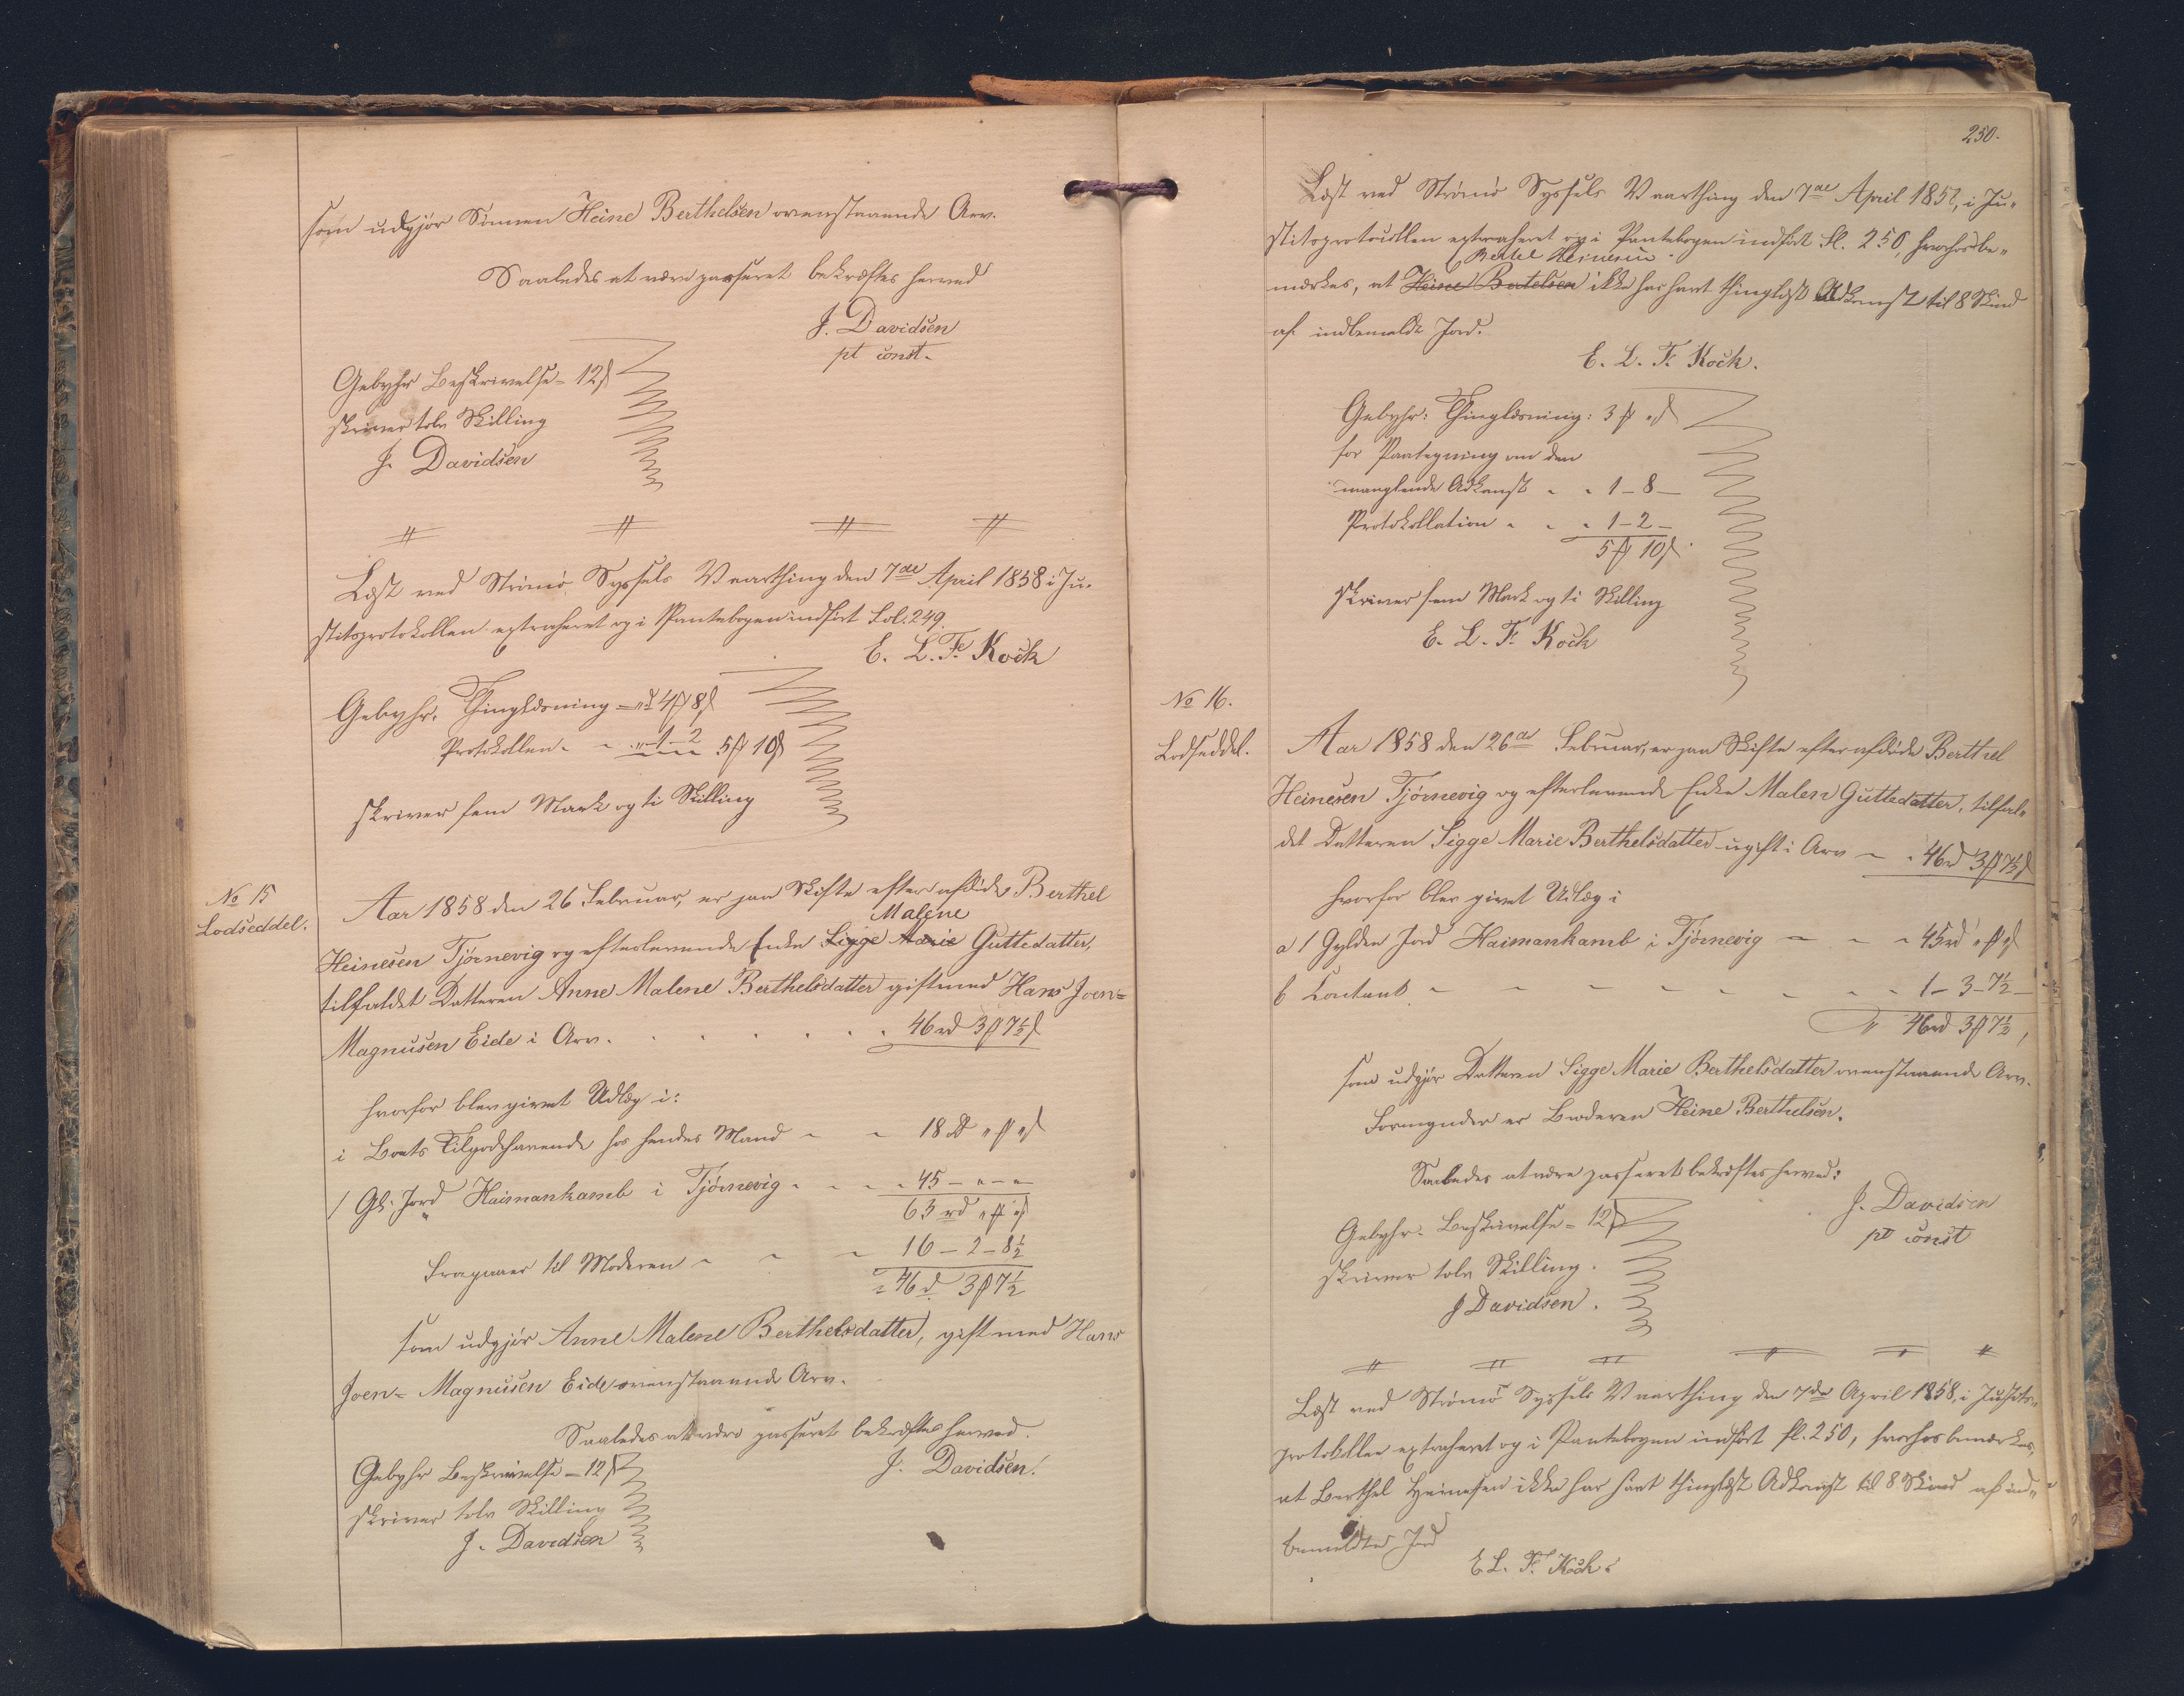 som udgjør Sønnen Heine Berthelsen ovenstaaende Arv.
Saaledes at være passeret bekræftes herved
J. Davidsen
pt const.
Gebyhr Beskrivelse = 12 ß
skriver tolv Skilling
J. Davidsen
Læst ved Strømø Syssels Vaarthing den 7de April 1858 i Ju-
stitsprotokollen extraheret og i Pantebogen indført Fol. 249.
E. L. Fr. Kock
Gebyhr. Thinglæsning = „ 4 ₰ 8 ß
Protokollen - - „ 1 - 2 5 ₰ 10 ß
skriver fem Mark og ti Skilling
No 15
Lodseddel.
Aar 1858 den 26 Februar, er paa Skifte efter afdøde Berthel
Malene
Heinesen Tjørnevig og efterlevende Enke Sigge Marie Guttedatter,
tilfaldet Datteren Anne Malene Berthelsdatter gift med Hans Joen-
Magnusen Eide i Arv. . . . . . 46 rd 3 ₰ 7½ ß
hvorfor blev givet Udlæg i:
i Boets Tilgodehavende hos hendes Mand - - 18 rd „ ₰ „ ß
1 Gl. Jord Haimankamb i Tjørnevig - - - 45 - „ - „
63 rd „ ₰ „ ß
Fragaaer til Moderen - - - 16 - 2 - 8½
= 46 rd 3 ₰ 7½
som udgjør Anne Malene Berthelsdatter, gift med Hans
Joen- Magnusen Eide ovenstaaende Arv.
Saaledes at være passeret bekræftes herved.
J. Davidsen.
Gebyhr Beskrivelse = 12 ß
skriver tolv Skilling
J. Davidsen
250.
Læst ved Strømø Syssels Vaarthing den 7de April 1858, i Ju-
stitsprotocollen extraheret og i Pantebogen indført fl. 250, hvorhos be-
Bertel Heinesen
mærkes, at Heine Bertelsen ikke har havt thinglæst Adkomst til 8 Skind
af indbemeldte Jord.
E. L. Fr. Kock.
Gebyhr: Thinglæsning: 3 ₰ „ ß
for Paategning om den
manglende Adkomst - - 1 - 8 -
Protokollation - - - 1 - 2 -
5 ₰ 10 ß.
skriver fem Mark og ti Skilling
E. L. Fr. Kock
No 16.
Lodseddel.
Aar 1858 den 26de Februar, er paa Skifte efter afdøde Berthel
Heinesen Tjørnevig og efterlevende Enke Malen Guttedatter, tilfal-
det Datteren Sigge Marie Berthelsdatter ugift i Arv - - 46 rd 3 ₰ 7½ ß
hvorfor blev givet Udlæg i
a 1 Gylden Jord Haimankamb i Tjørnevig - - - 45 rd „ ₰ „ ß
b Contant - - - - - - - - 1 - 3 - 7½ -
46 rd 3 ₰ 7½,
som udgjør Datteren Sigge Marie Berthelsdatter ovenstaaende Arv.
Formynder er Broderen Heine Berthelsen.
Saaledes at være passeret bekræftes herved:
J. Davidsen
pt const
Gebyhr. Beskrivelse = 12 ß
skriver tolv Skilling.
J Davidsen.
Læst ved Strømø Syssels Vaarthing den 7de April 1858, i Justits-
protokollen extraheret og i Pantebogen indført fl. 250, hvorhos bemærkes,
at Berthel Heinesen ikke har havt thinglæst Adkomst til 8 Skind af ind-
bemeldte Jord
E. L. Fr. Kock.